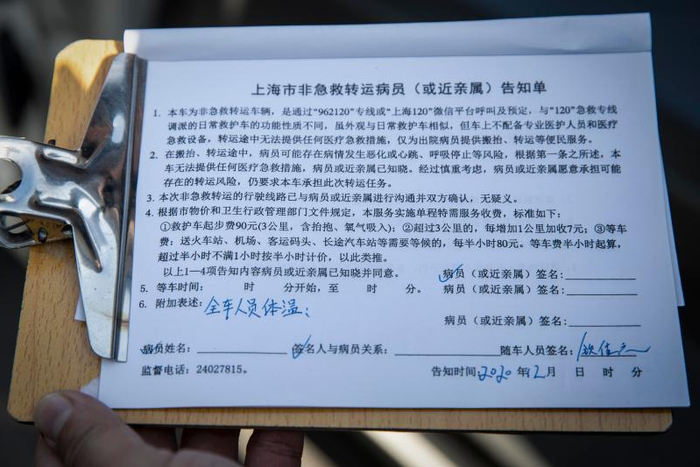 上海市非急救转运病员（或近亲属）告知单
1. 本车为非急救转运车辆，是通过“962120”专线或“上海120”微信平台呼叫及预定，与“120”急救专线
调派的日常救护车的功能性质不同，虽外观与日常救护车相似，但车上不配备专业医护人员和医疗
急救设备，转运途中无法提供任何医疗急救措施，仅为出院病员提供搬抬、转运等便民服务。
2. 在搬抬、转运途中，病员可能存在病情发生恶化或心跳、呼吸停止等风险，根据第一条之所述，本
车无法提供任何医疗急救措施，病员或近亲属已知晓。经过慎重考虑，病员或近亲属愿意承担可能
存在的转运风险，仍要求本车承担此次转运任务。
3. 本次非急救转运的行驶线路已与病员或近亲属进行沟通并双方确认，无疑义。
4. 根据市物价和卫生行政管理部门文件规定，本服务实施单程特需服务收费，标准如下：
①救护车起步费90元(3公里，含抬抱、氧气吸入)；②超过3公里的，每增加1公里加收7元；③等车
费：送火车站、机场、客运码头、长途汽车站等需要等候的，每半小时80元。等车费半小时起算，
超过半小时不满1小时按半小时计价，以此类推。
以上1—4项告知内容病员或近亲属已知晓并同意。 病员（或近亲属）签名：
5. 等车时间： 时 分开始，至 时 分。 病员（或近亲属）签名：
6. 附加表述：全车人员体温：
病员（或近亲属）签名：
病员姓名： 签名人与病员关系： 随车人员签名：
监督电话：24027815。 告知时间：2020年12月 日 时 分